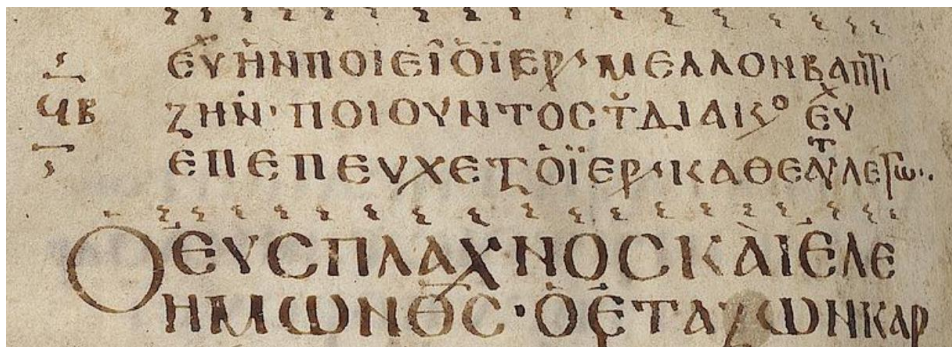 ΕΥΧ ΗΝ ΠΟΙΕΙ Ο ΪΕΡʹ ΜΕΛΛΟΝ ΒΑΠΤΙ
ϤΒ ΖΗΝ· ΠΟΙΟΥΝΤΟϹ Τ ΔΙΑΚΟ ΕΥΧ
ΕΠΕΠΕΥΧΕΤ Ο ΪΕΡʹ ΚΑΘΕΑΥΤ ΛΕΓΩ·.
Ο ΕΥϹΠΛΑΧΝΟϹ ΚΑΙ ΕΛΕ
ΗΜΩΝ Θ̅Ϲ̅· Ο ΕΤΑΖΩΝ ΚΑΡ